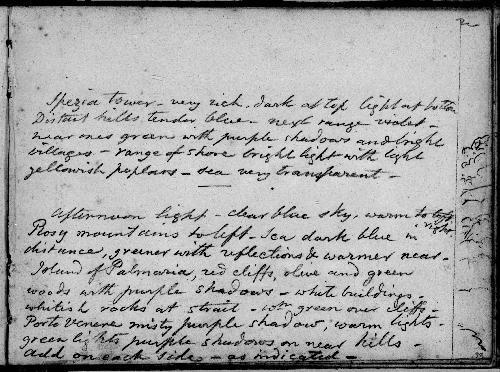 Spezia tower - very rich. dark at top light at bottom
Distant hills tender blue - next range violet -
near ones green with purple shadows and bright
villages - range of shore bright light with light
yellowish poplars - sea very transparent -
Afternoon light - clear blue sky, warm to left
right.
Rosy mountains to left - Sea dark blue in
distance, greener with reflections & warmer near -
Island of Palmaria, red cliffs, olive and green
woods with purple shadows - white buildings -
whitish rocks at strait - with green over cliffs -
Porto Venere misty purple shadow, warm lights -
green lights purple shadows on near hills -
Add on each side - as indicated -